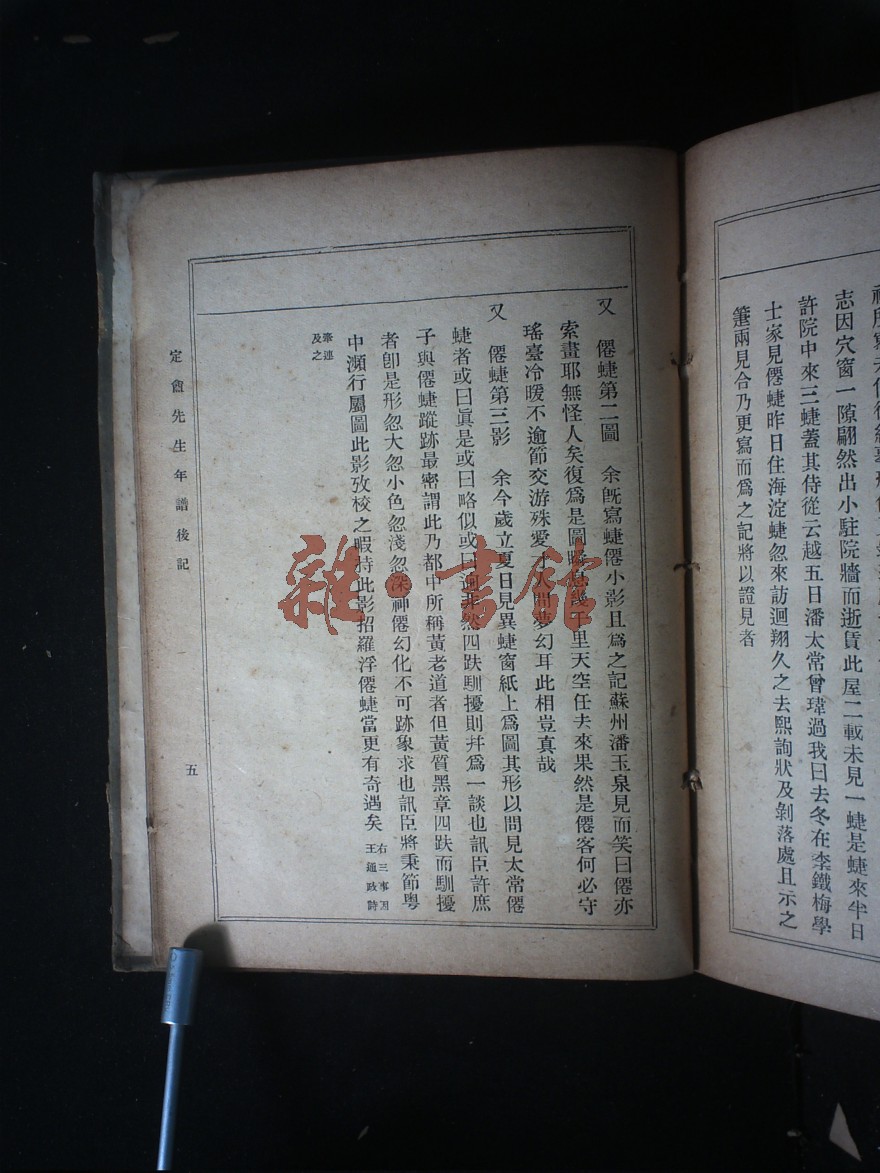 志因穴窗一隙翩然出小駐院牆而逝賃此屋二載未見一蜨是蜨來半日
許院中來三蜨蓋其侍從云越五日潘太常曾瑋過我曰去冬在李鐵梅學
士家見僊蜨昨日住海淀蜨忽來訪迴翔久之去熙詢狀及剝落處且示之
筆兩見合乃更寫而爲之記將以證見者
又　僊蜨第二圖　余旣寫蜨僊小影且爲之記蘇州潘玉泉見而笑曰僊亦
索畫耶無怪人矣復爲是圖瞬息幾千里天空任去來果然是僊客何必守
瑤臺冷暖不逾節交游殊愛才人間夢幻耳此相豈真哉
又　僊蜨第三影　余今歲立夏日見異蜨窗紙上爲圖其形以問見太常僊
蜨者或曰眞是或曰略似或曰迥非然四趺馴擾則幷爲一談也訊臣許庶
子與僊蜨蹤跡最密謂此乃都中所稱黃老道者但黃質黑章四趺而馴擾
者卽是形忽大忽小色忽淺忽深神僊幻化不可跡象求也訊臣將秉節粵
中瀕行屬圖此影攷校之暇持此影招羅浮僊蜨當更有奇遇矣 右三事因王通政詩
牽連及之
定盦先生年譜後記
五
雜·書館